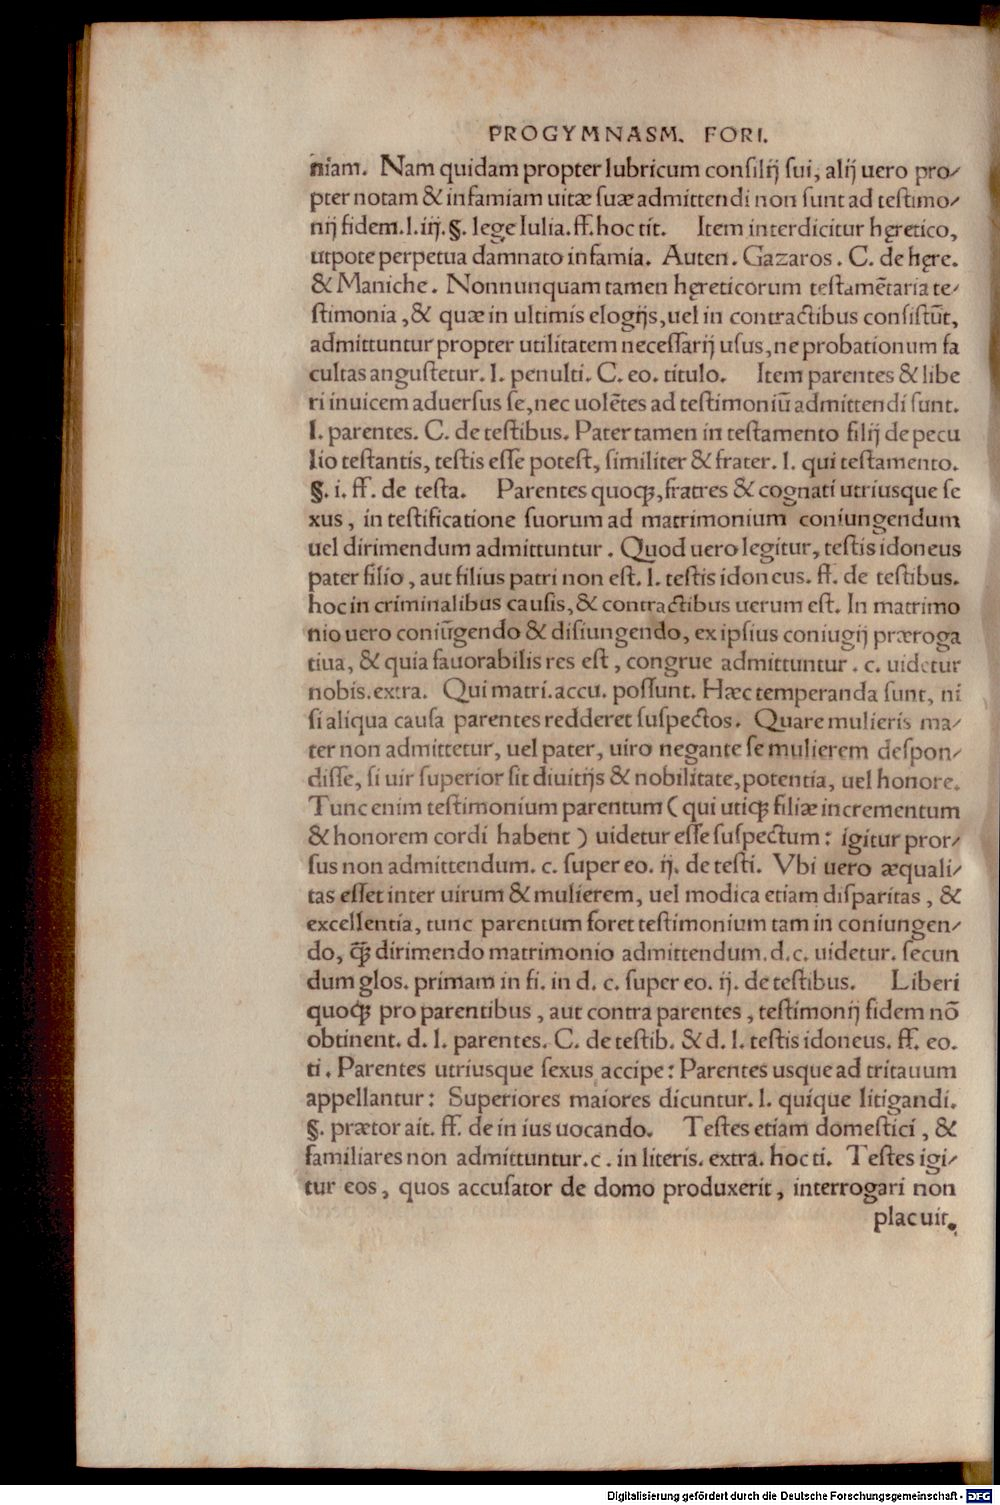 PROGYMNASM. FORI.
niam. Nam quidam propter lubricum consilij sui, alij uero pro/
pter notam & infamiam uitæ suæ admittendi non sunt ad testimo/
nij fidem. l. iij. §. lege Iulia. ff. hoc tit. Item interdicitur hęretico,
utpote perpetua damnato infamia. Auten. Gazaros. C. de hęre.
& Maniche. Nonnunquam tamen hęreticorum testamētaria te/
stimonia, & quæ in ultimis elogijs, uel in contractibus consistūt,
admittuntur propter utilitatem necessarij usus, ne probationum fa
cultas angustetur. l. penulti. C. eo. titulo. Item parentes & libe
ri inuicem aduersus se, nec uolētes ad testimoniū admittendi sunt.
l. parentes. C. de testibus. Pater tamen in testamento filij de pecu
lio testantis, testis esse potest, similiter & frater. l. qui testamento.
§. i. ff. de testa. Parentes quoqꝫ, fratres & cognati utriusque se
xus, in testificatione suorum ad matrimonium coniungendum
uel dirimendum admittuntur. Quod uero legitur, testis idoneus
pater filio, aut filius patri non est. l. testis idoneus. ff. de testibus.
hoc in criminalibus causis, & contractibus uerum est. In matrimo
nio uero coniūgendo & disiungendo, ex ipsius coniugij præroga
tiua, & quia fauorabilis res est, congrue admittuntur. c. uidetur
nobis. extra. Qui matri. accu. possunt. Hæc temperanda sunt, ni
si aliqua causa parentes redderet suspectos. Quare mulieris ma/
ter non admittetur, uel pater, uiro negante se mulierem despon/
disse, si uir superior sit diuitijs & nobilitate, potentia, uel honore.
Tunc enim testimonium parentum ( qui utiqꝫ filiæ incrementum
& honorem cordi habent ) uidetur esse suspectum: igitur pror/
sus non admittendum. c. super eo. ij. de testi. Vbi uero æquali/
tas esset inter uirum & mulierem, uel modica etiam disparitas, &
excellentia, tunc parentum foret testimonium tam in coniungen/
do, q̃ꝫ dirimendo matrimonio admittendum. d. c. uidetur. secun
dum glos. primam in fi. in d. c. super eo. ij. de testibus. Liberi
quoqꝫ pro parentibus, aut contra parentes, testimonij fidem nō
obtinent. d. l. parentes. C. de testib. & d. l. testis idoneus. ff. eo.
ti. Parentes utriusque sexus accipe: Parentes usque ad tritauum
appellantur: Superiores maiores dicuntur. l. quique litigandi.
§. prætor ait. ff. de in ius uocando. Testes etiam domestici, &
familiares non admittuntur. c. in literis. extra. hoc ti. Testes igi/
tur eos, quos accusator de domo produxerit, interrogari non
placuit.
Digitalisierung gefördert durch die Deutsche Forschungsgemeinschaft - DFG